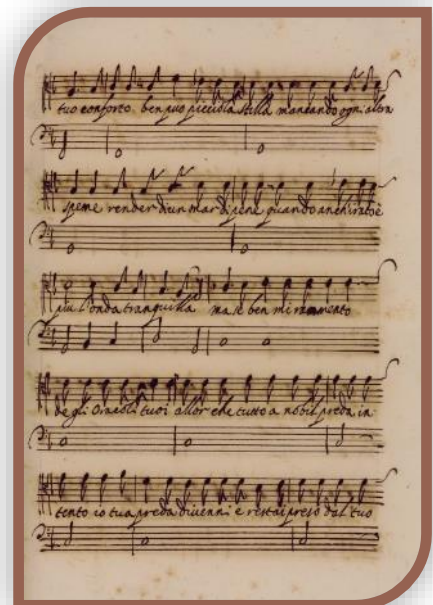 tuo conforto ben puo picciola stilla mancando ogni altra
speme render di un mar di pene quando anch'irato è
piu l'onda tranquilla ma se ben mi rammento
degli Oracoli tuoi allor che tutto a nobil preda in
tento io tua preda divenni e restai preso dal tuo